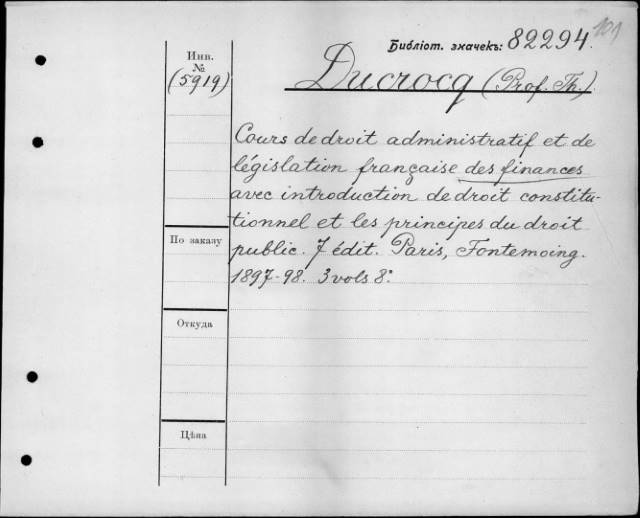 101
Библіот. значекъ: 82294.
Инв.
№
(5919)
Ducrocq (Prof. Th.)
Cours de droit administratif et de
législation française des finances
avec introduction de droit constitu-
tionnel et les principes du droit
public. 7 édit. Paris, Fontemoing.
1897-98. 3 vols 8°.
По заказу
Откуда
Цѣна